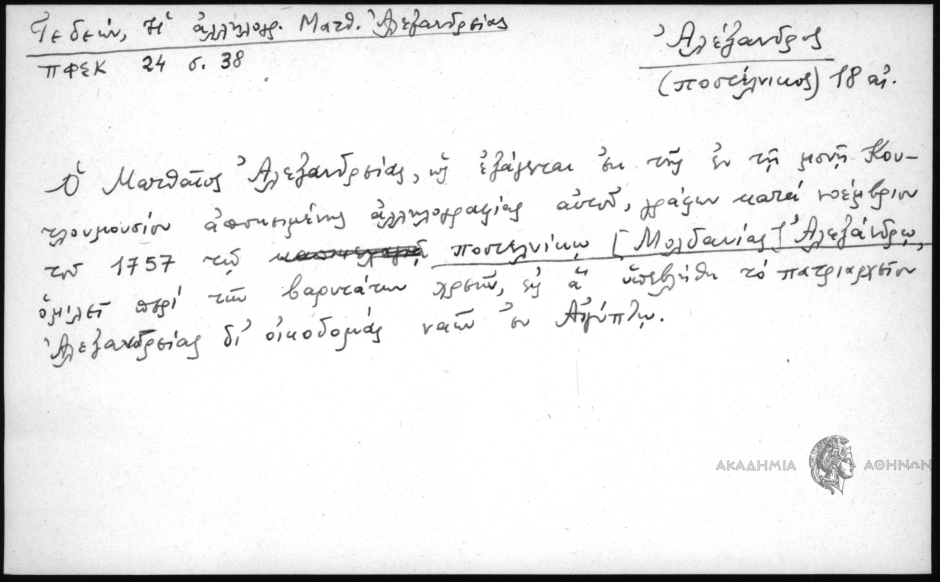 Γεδεών, Ἡ ἀλληλογρ. Ματθ. Ἀλεξανδρείας
ΠΦΣΚ 24 σ. 38
Ἀλέξανδρος
(ποστέλνικος) 18 αἰ.
Ὁ Ματθαῖος Ἀλεξανδρείας, ὡς ἐξάγεται ἐκ τῆς ἐν τῇ μονῇ Κου-
τλουμουσίου ἀποκειμένης ἀλληλογραφίας αὐτοῦ, γράφων κατὰ νοέμβριον
τοῦ 1757 τῷ ποστελνίκῳ [Μολδαυίας] Ἀλεξάνδρῳ,
ὁμιλεῖ περὶ τῶν βαρυτάτων χρεῶν, εἰς ἃ ὑπεβλήθη τὸ πατριαρχεῖον
Ἀλεξανδρείας δι' οἰκοδομὰς ναῶν ἐν Αἰγύπτῳ.
ΑΚΑΔΗΜΙΑ ΑΘΗΝΩΝ